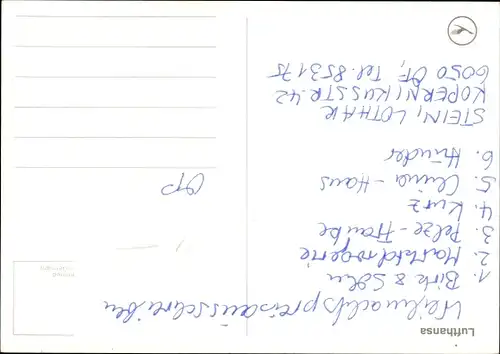 Lufthansa
Weihnachtspreisausschreiben
1. Birk & Sohn
2. Marktdrogerie
3. Pelze-Franke
4. Kurz
5. China-Haus
6. Hinder
STEIN, LOTHAR
KOPERNIKUSSTR. 42
6050 OF, Tel. 853175